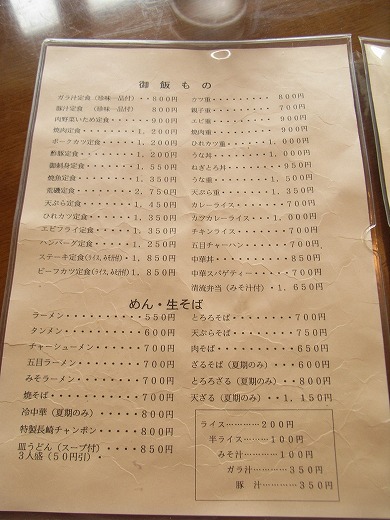 御飯もの
ガラ汁定食（珍味一品付）・・８００円
豚汁定食 （珍味一品付） ８００円
肉野菜いため定食・・・・・・９００円
焼肉定食・・・・・・・１，２００円
ポークカツ定食・・・・１，２００円
酢豚定食・・・・・・・１，２００円
御刺身定食・・・・・・１，５５０円
焼魚定食・・・・・・・１，３５０円
荒磯定食・・・・・・・２，７５０円
天ぷら定食・・・・・・１，４５０円
ひれカツ定食・・・・・１，３５０円
エビフライ定食・・・・１，３５０円
ハンバーグ定食・・・・１，２５０円
ステーキ定食(ライス、みそ汁付)１，８５０円
ビーフカツ定食(ライス、みそ汁付)１，８５０円
カツ重・・・・・・・・・８００円
親子重・・・・・・・・・７００円
エビ重・・・・・・・・・９００円
焼肉重・・・・・・・・・９００円
ひれカツ重・・・・・・１，０００円
うな丼・・・・・・・・１，０００円
ねぎとろ丼・・・・・・・９５０円
うな重・・・・・・・・１，５００円
天ぷら重・・・・・・・１，３５０円
カレーライス・・・・・・７００円
カツカレーライス・・・１，０００円
チキンライス・・・・・・７００円
五目チャーハン・・・・・７００円
中華丼・・・・・・・・・８５０円
中華スパゲティー・・・・７００円
清流弁当（みそ汁付）・１，６５０円
めん・生そば
ラーメン・・・・・・・・５５０円
タンメン・・・・・・・・６００円
チャーシューメン・・・・７００円
五目ラーメン・・・・・・７００円
みそラーメン・・・・・・７００円
焼そば・・・・・・・・・７００円
冷中華（夏期のみ）・・・８００円
特製長崎チャンポン・・・８００円
皿うどん（スープ付）・・・８５０円
３人盛（５０円引）・
とろろそば・・・・・・・７００円
天ぷらそば・・・・・・・７５０円
肉そば・・・・・・・・・６５０円
ざるそば（夏期のみ）・・６００円
とろろざる（夏期のみ）・・８００円
天ざる（夏期のみ）・・１，１５０円
ライス…………２００円
半ライス………１００円
みそ汁…………１００円
ガラ汁…………３５０円
豚 汁…………３５０円